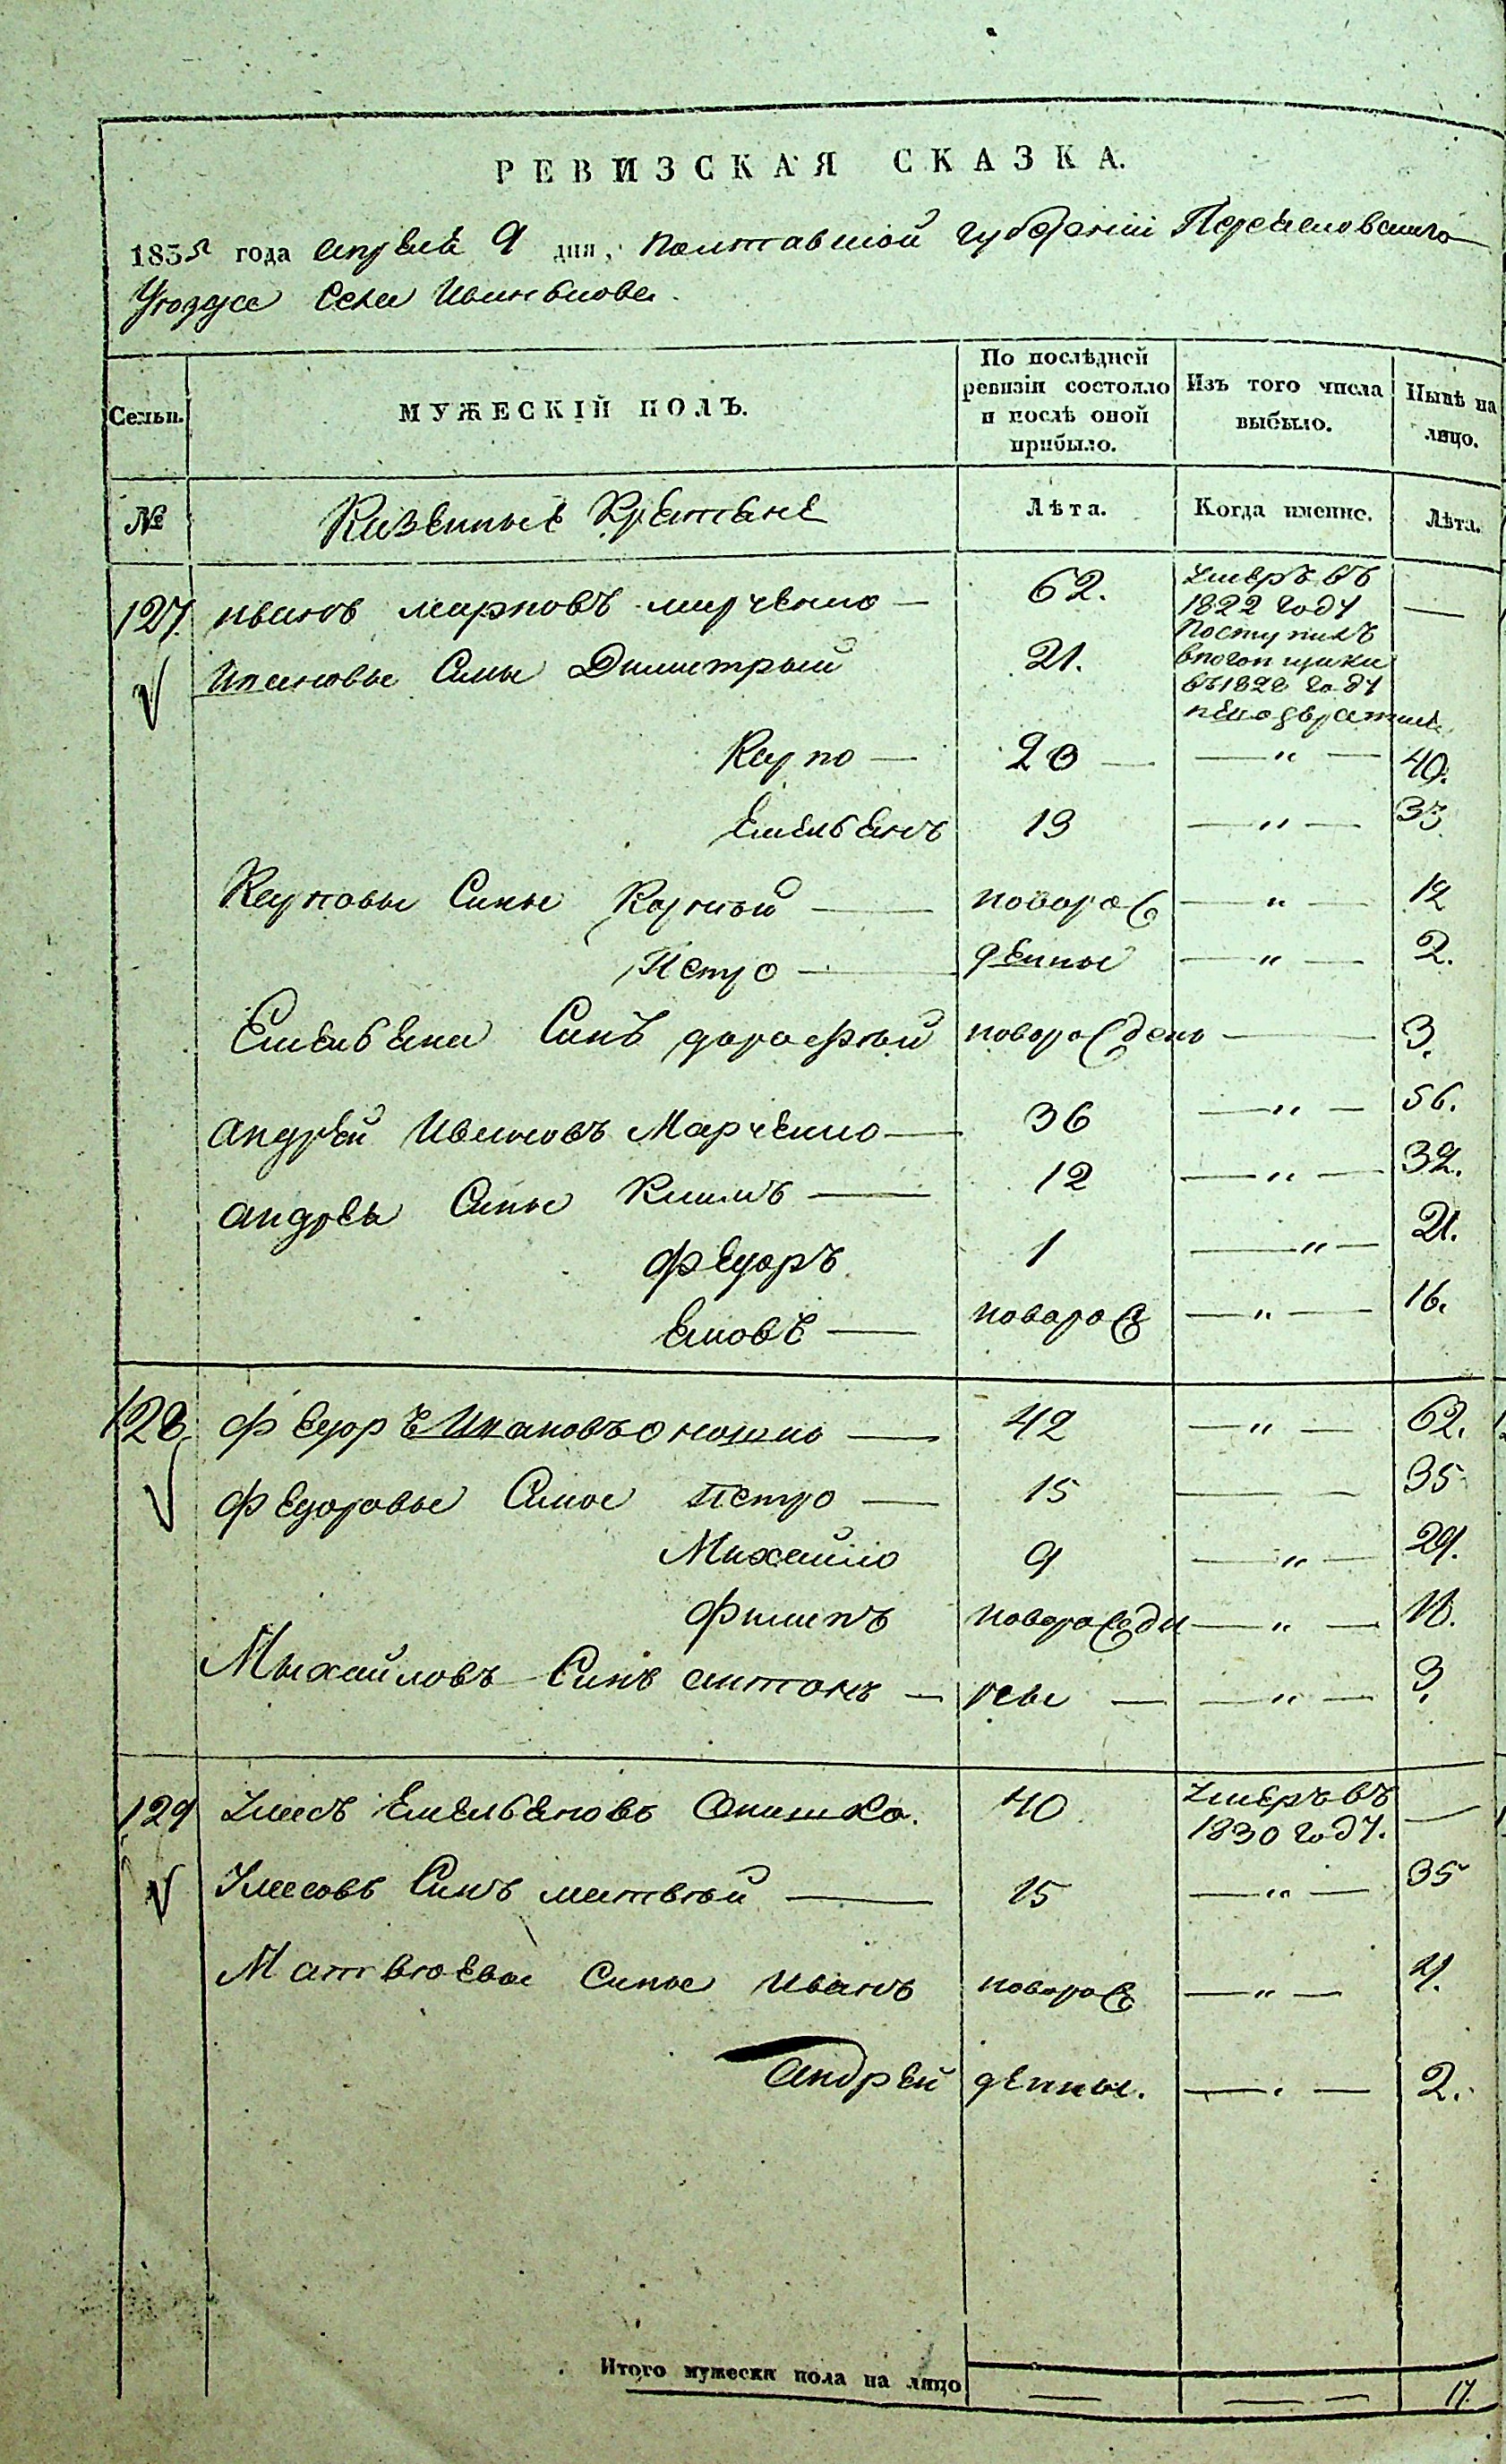 РЕВИЗСКАЯ СКАЗКА.
1835 года апреля 9 дня, Полтавской губернии Переяславского
Уезда Села Иванькова.
Семьи. МУЖЕСКІЙ ПОЛЪ. По послѣдней ревизіи состояло и послѣ оной прибыло. Изъ того числа выбыло. Нынѣ на лицо.
№ Казенные Крестяне Лѣта. Когда именно. Лѣта.
127. Иванъ Марковъ Марченко — 62. Умеръ въ 1822 году —
Ивановы Сины Димитрый 21. Поступилъ в погонщики въ 1828 году
Карпо — 20 — — " — 40.
Емельенъ 13 — " — 33
Карповы Сины Корнѣй — новорож — " — 12
Петро — денные — " — 2.
Емельена Синъ дорофѣй новорожденъ — 3.
Андрей Ивановъ Марченко — 36 — " — 56.
Андрея Сины Климъ — 12 — " — 32.
Федоръ 1 — " — 21.
Яковъ — новорож — " — 16.
128. Федоръ Ивановъ Оношко — 42 — " — 62.
Федоровы Сины Петро — 15 — 35
Михайло 9 — " — 29.
Филипъ новорожден — " — 18.
Михайловъ Синъ антонъ — ные — — " — 3.
129 Уласъ Емельеновъ Онишко. 40 Умеръ въ 1830 году. —
Уласовъ Синъ матвѣй — 15 — " — 35
Матвѣевы Сины Иванъ новорож — " — 4.
Андрей денные. — " — 2.
Итого мужеска пола на лицо — — — 17.